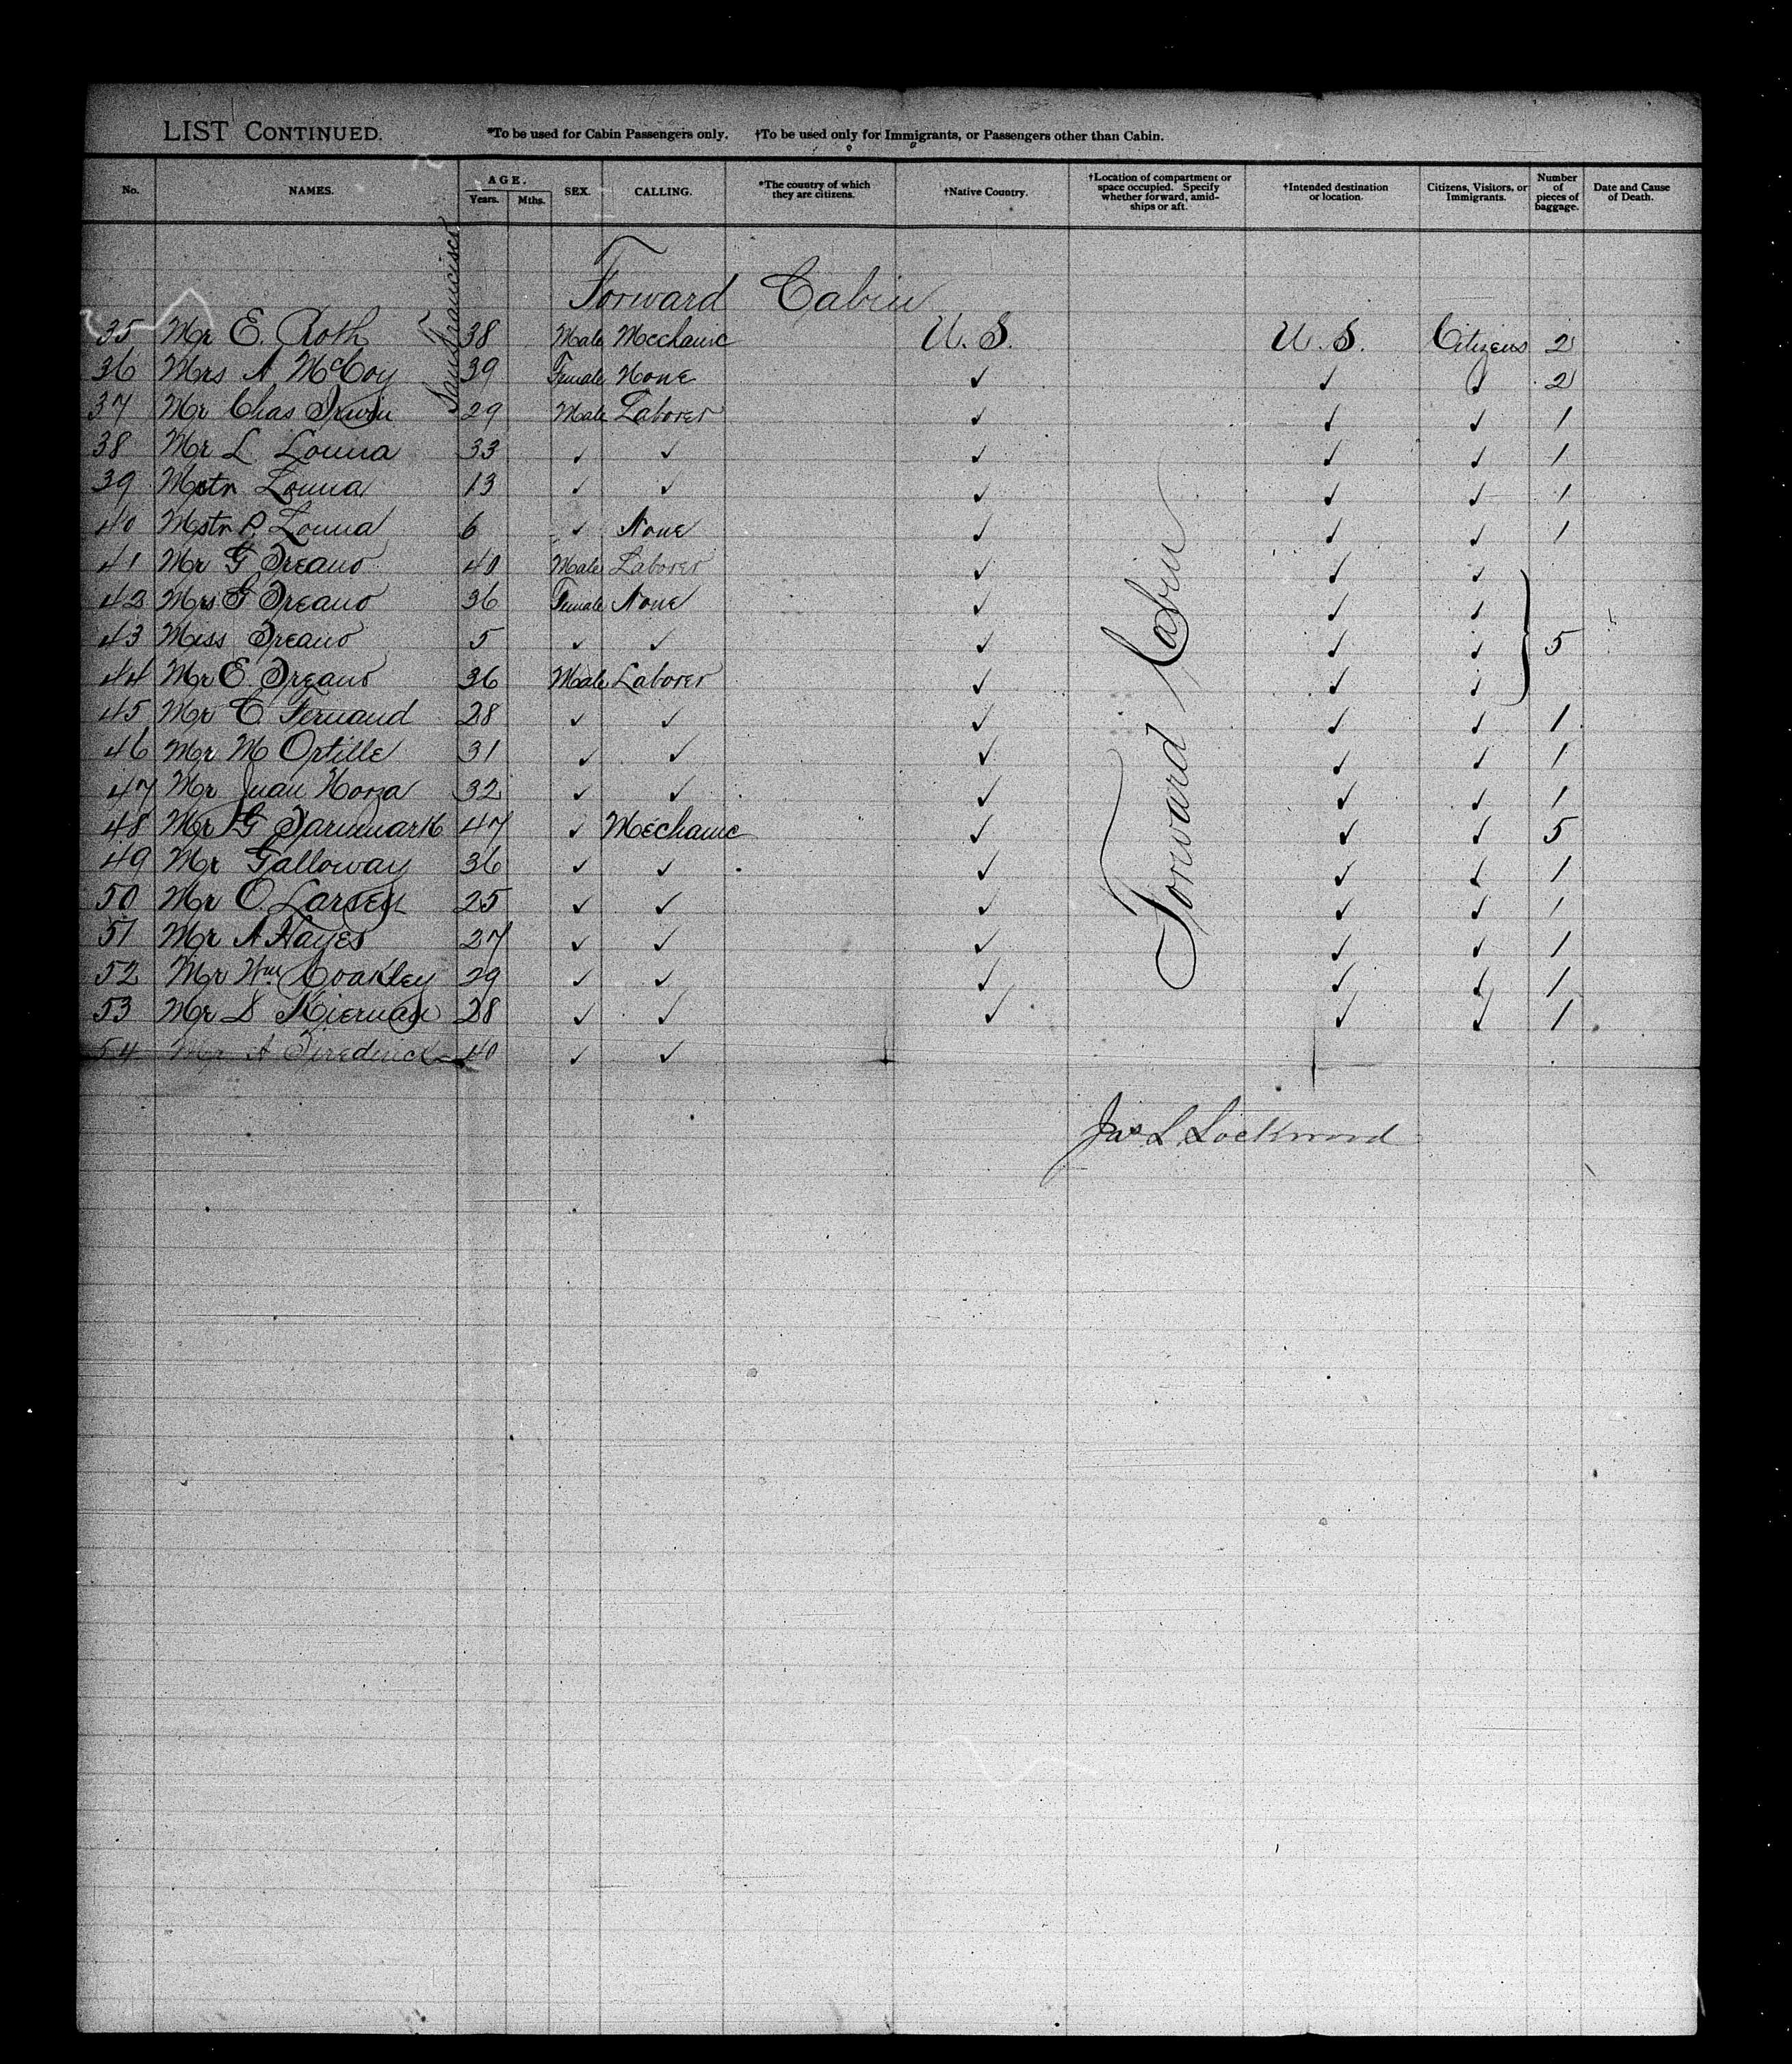 LIST CONTINUED. *To be used for Cabin Passengers only. †To be used only for Immigrants, or Passengers other than Cabin.
No. NAMES. AGE. Years. Mths. SEX. CALLING. *The country of which they are citizens. †Native Country. †Location of compartment or space occupied. Specify whether forward, amidships or aft. †Intended destination or location. Citizens, Visitors, or Immigrants. Number of pieces of baggage. Date and Cause of Death.
San Francisco
Forward Cabin
35 Mr E. Roth 38 Male Mechanic U.S. U.S. Citizens 2
36 Mrs A McCoy 39 Female None ✓ ✓ ✓ 2
37 Mr Chas Irwin 29 Male Laborer ✓ ✓ ✓ 1
38 Mr L. Louna 33 ✓ ✓ ✓ ✓ ✓ 1
39 Mstr Louna 13 ✓ ✓ ✓ ✓ ✓ 1
40 Mstr P. Louna 6 ✓ None ✓ ✓ ✓ 1
41 Mr G 40 Male Laborer ✓ ✓ ✓
42 Mrs G 36 Female None ✓ ✓ ✓
43 Miss 5 ✓ ✓ ✓ ✓ ✓ 5
44 Mr E 36 Male Laborer ✓ ✓ ✓
45 Mr C. Fernand 28 ✓ ✓ ✓ ✓ ✓ 1
46 Mr M Ortille 31 ✓ ✓ ✓ ✓ ✓ 1
47 Mr Juan 32 ✓ ✓ ✓ ✓ ✓ 1
48 Mr G 47 ✓ Mechanic ✓ ✓ ✓ 5
49 Mr Galloway 36 ✓ ✓ ✓ ✓ ✓ 1
50 Mr O. Larsen 25 ✓ ✓ ✓ ✓ ✓ 1
51 Mr A Hayes 27 ✓ ✓ ✓ ✓ ✓ 1
52 Mr Wm Coakley 29 ✓ ✓ ✓ ✓ ✓ 1
53 Mr D Kiernan 28 ✓ ✓ ✓ ✓ ✓ 1
54 Mr A 40 ✓ ✓
Forward Cabin
Jas L Lockwood